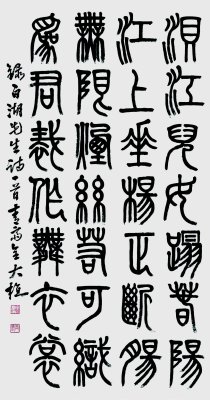 浿江兒女蹋春陽
江上垂楊正斷腸
無限煙絲若可織
爲君裁作舞衣裳
錄白湖先生詩一首